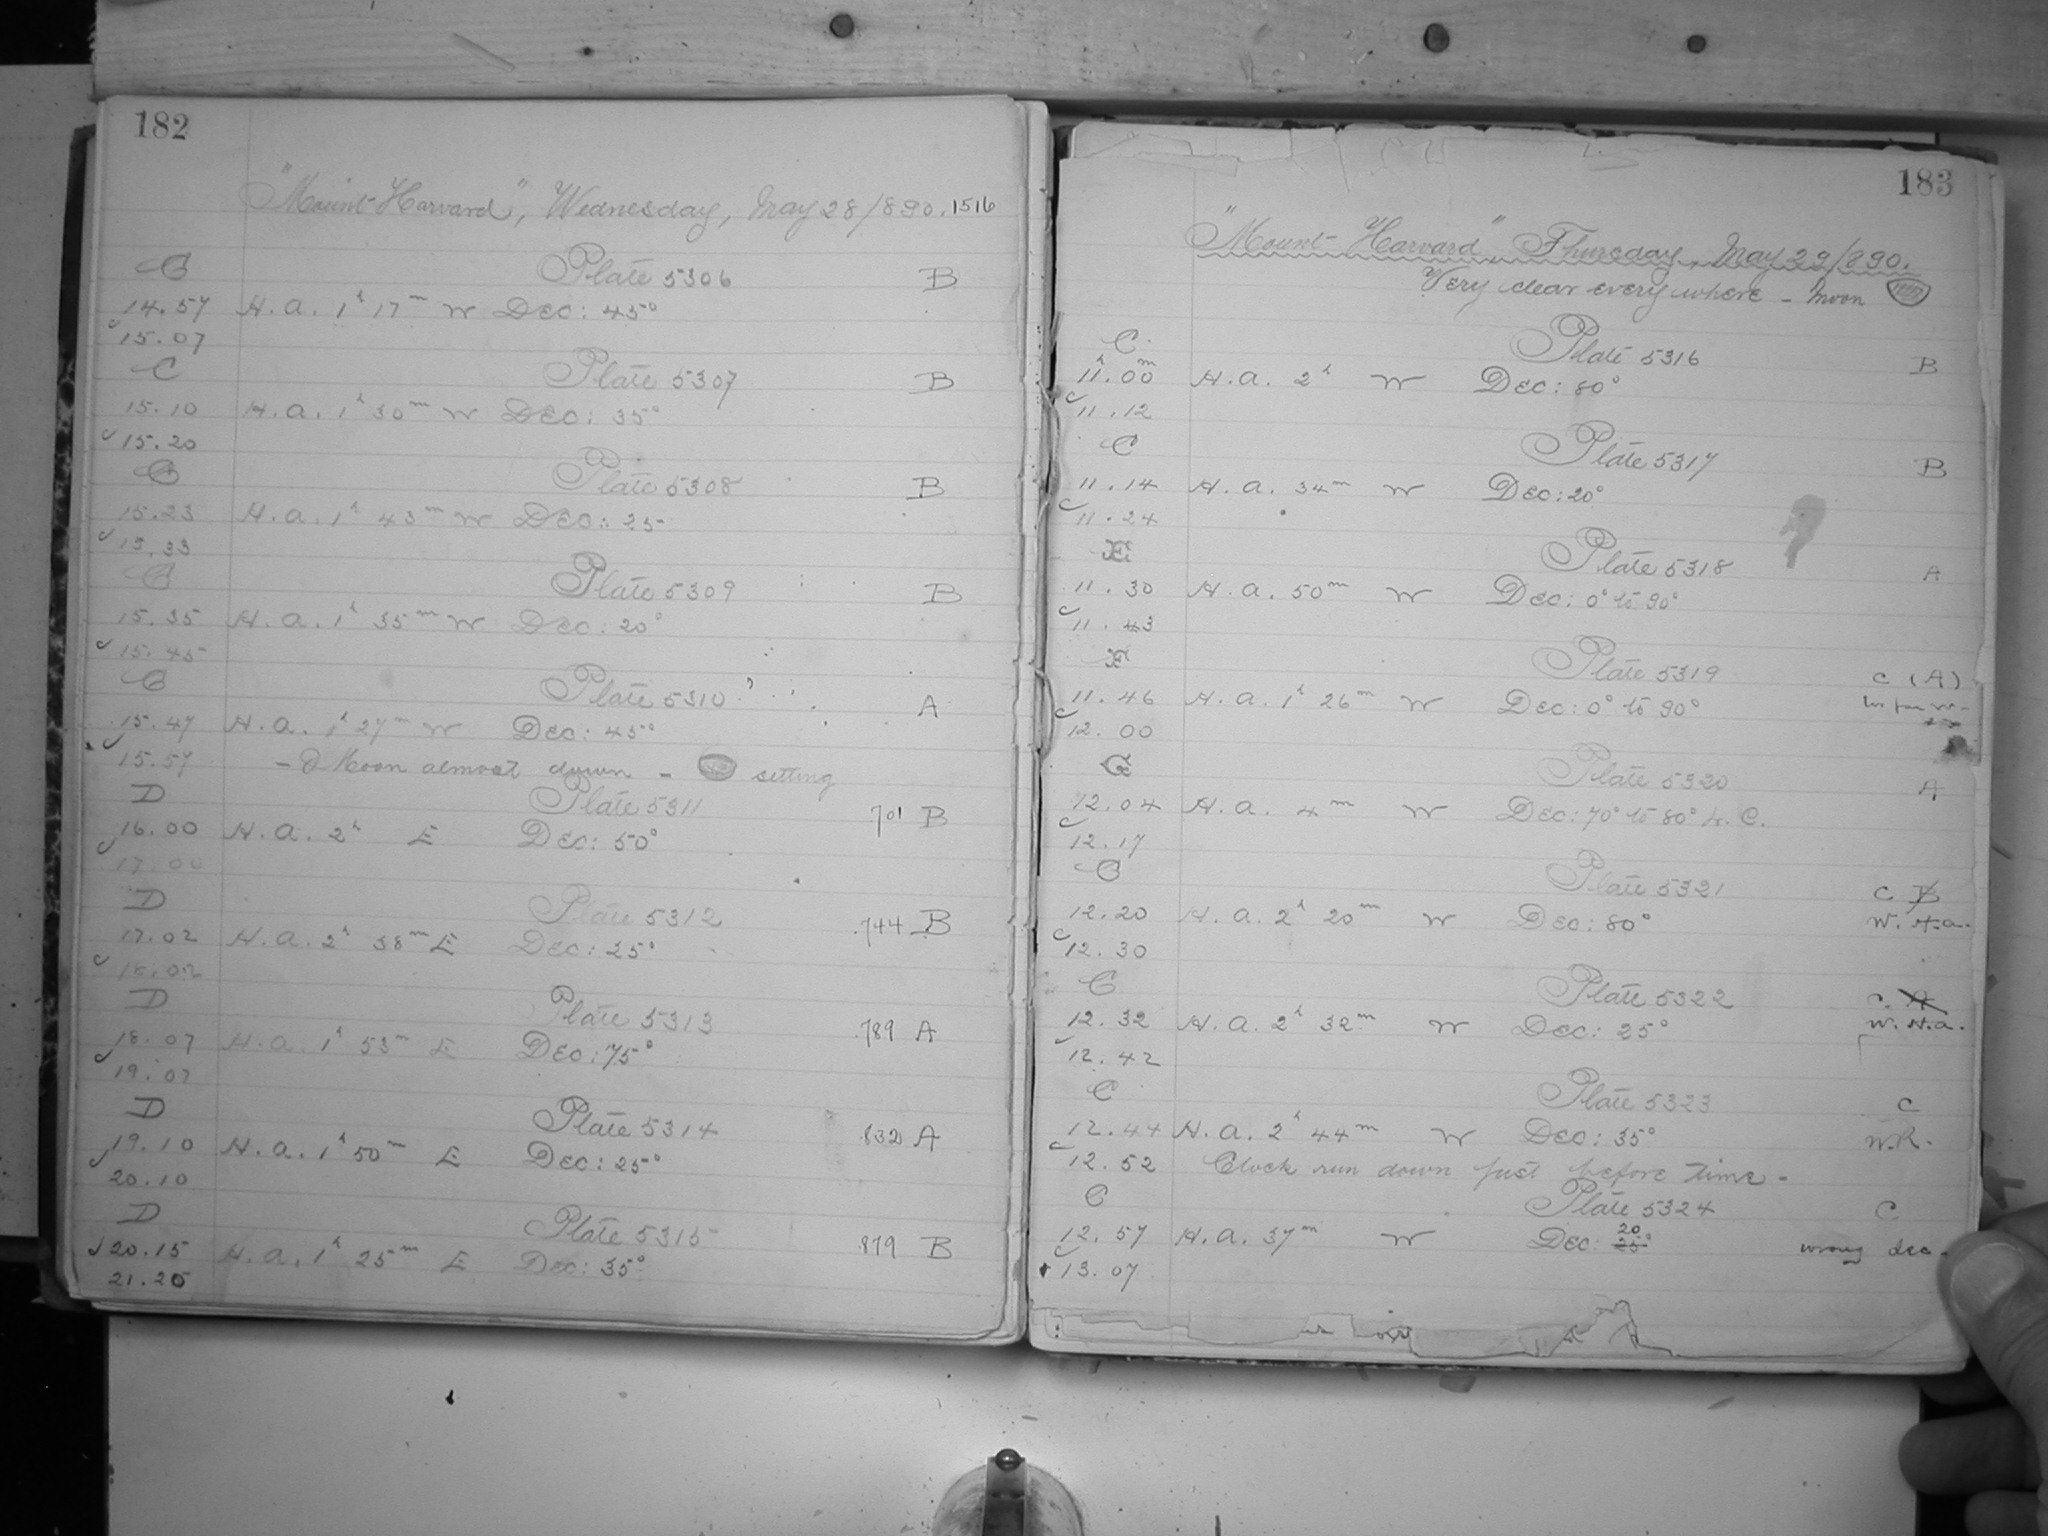 182
"Mount Harvard", Wednesday, May 28/890. 1516
C Plate 5306 B
14.57 H.a. 1h 17m W Dec: 45°
15.07
C Plate 5307 B
15.10 H.a. 1h 30m W Dec: 35°
15.20
C Plate 5308 B
15.23 H.a. 1h 43m W Dec: 25
15.33
C Plate 5309 B
15.35 H.a. 1h 35m W Dec: 20°
15.45
C Plate 5310 A
15.47 H.a. 1h 27m W Dec: 45°
15.57 - Moon almost down - setting
D Plate 5311 701 B
16.00 H.a. 2h E Dec: 50°
17.00
D Plate 5312 744 B
17.02 H.a. 2h 38m E Dec: 25°
18.02
D Plate 5313 789 A
18.07 H.a. 1h 53m E Dec: 75°
19.07
D Plate 5314 832 A
19.10 H.a. 1h 50m E Dec: 25°
20.10
D Plate 5315 879 B
20.15 H.a. 1h 25m E Dec: 35°
21.20
183
"Mount Harvard", Thursday, May 29/890.
Very clear every where - Moon
C. Plate 5316 B
11h.00m H.a. 2h W Dec: 80°
11.12
C Plate 5317 B
11.14 H.a. 34m W Dec: 20°
11.24
E Plate 5318 A
11.30 H.a. 50m W Dec: 0° to 90°
11.43
F Plate 5319 C (A)
11.46 H.a. 1h 26m W Dec: 0° to 90°
12.00
G Plate 5320 A
12.04 H.a. 4m W Dec: 70° to 80° L.C.
12.17
C Plate 5321 C B
12.20 H.a. 2h 20m W Dec: 80° W.H.a.
12.30
C Plate 5322 C. A
12.32 H.a. 2h 32m W Dec: 25° W.H.a.
12.42
C Plate 5323 C
12.44 H.a. 2h 44m W Dec: 35° W.R.
12.52 Clock run down just before time -
C Plate 5324 C
12.57 H.a. 37m W Dec: 25° 20 wrong dec.
13.07